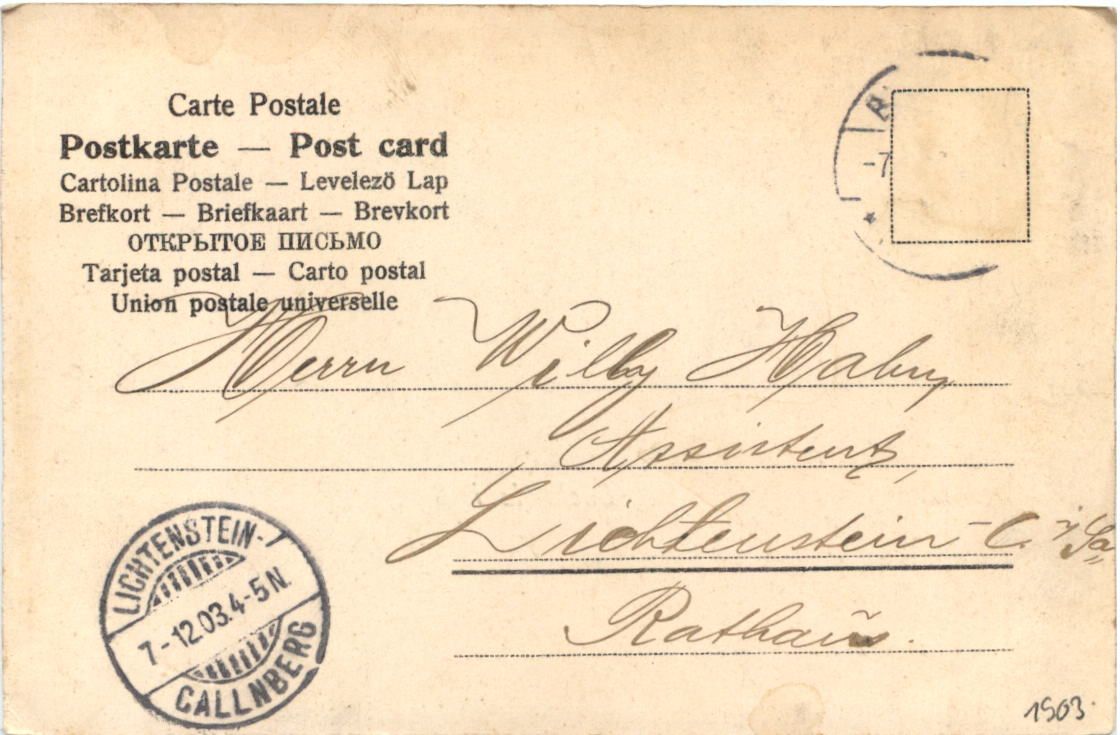 Carte Postale
Postkarte — Post card
Cartolina Postale — Levelező Lap
Brefkort — Briefkaart — Brevkort
ОТКРЫТОЕ ПИСЬМО
Tarjeta postal — Carto postal
Union postale universelle
-7
Herrn Willy Hahn,
Assistent,
Lichtenstein - C. i/Sa
Rathaus.
LICHTENSTEIN-
7-12.03.4-5N.
CALLNBERG
1903